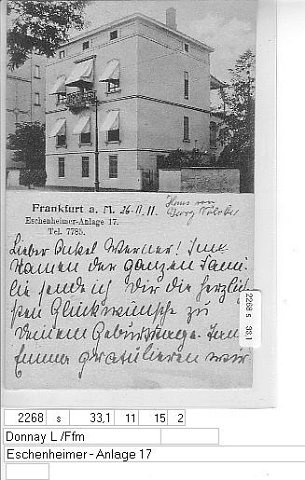 Frankfurt a. M. 26.11.11. Haus von
Eschenheimer-Anlage 17. Georg
Tel. 7785.
Lieber Onkel Werner! Im
Namen der ganzen Fami-
lie sende ich Dir die herzlich-
sten Glückwünsche zu
Deinem Geburtstage.
Emma gratulieren wir
2268 s 33,1
2268 s 33,1 11 15 2
Donnay L /Ffm
Eschenheimer - Anlage 17